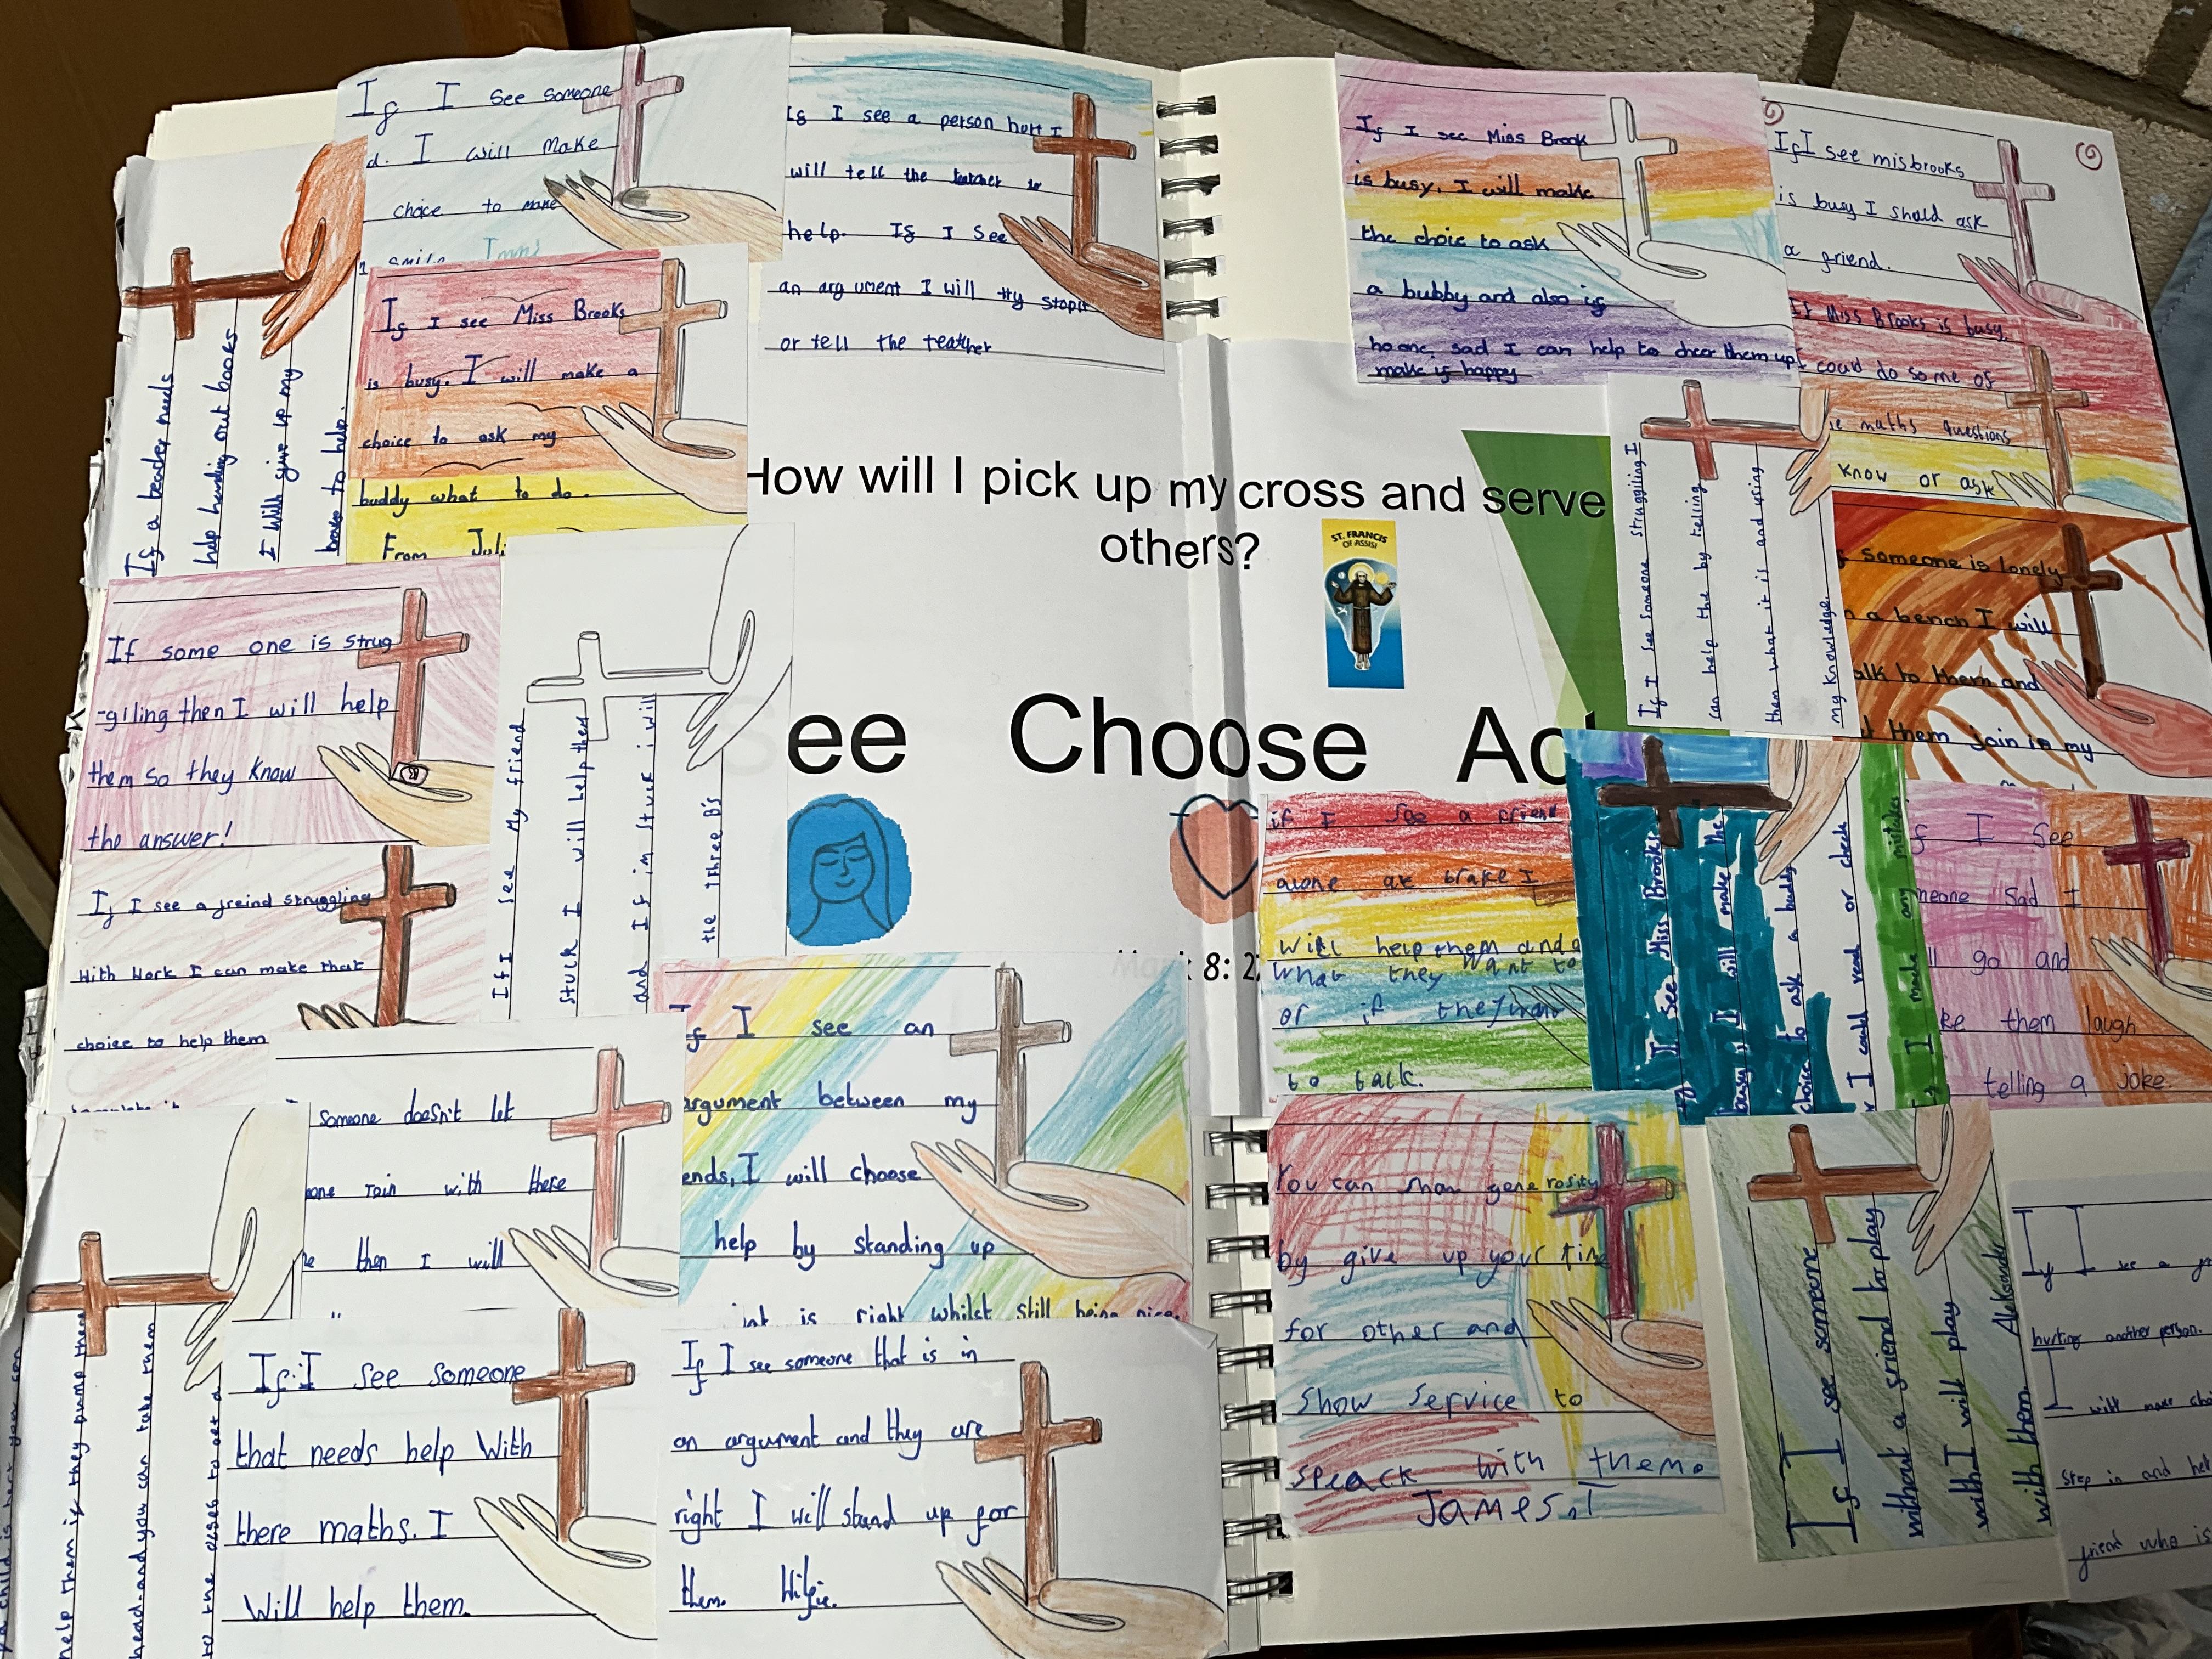 If I see someone
d. I will make
choice to make
smile
Is I see a person hurt I
will tell the teatcher to
help. If I see
an argument I will try stop it
or tell the teatcher
If I see Miss Brook
is busy. I will make
the choie to ask
a bubby and also if
no one, sad I can help to cheer them up
make if happy
If I see misbrooks
is busy I shuld ask
a friend.
If a teacher needs
help handing out books
I will give up my
to help.
If I see Miss Brooks
is busy. I will make a
choice to ask my
buddy what to do.
From Juli
If Miss Brooks is busy,
I could do some of
maths questions
know or ask
How will I pick up my cross and serve
others?
ST. FRANCIS
OF ASSISI
See Choose Act
Mark 8: 2
If I see someone struggiling I
can help the by telling
them what it is and using
my knowledge.
someone is lonely
a bench I will
talk to them and
them join in my
If some one is strug
-giling then I will help
them so they know
the answer!
If I see My friend
stuck I will help them
and If im stuck i will
the three B's
If I see a freind struggling
with work I can make that
choice to help them
if I see a friend
alone at brake I
will help them and
what they want to
or if they want
to talk.
If I see Miss Brooks
busy I will make the
choice to ask a buddy
or I could read or check
if I make any mistakes
If I see
someone sad I
go and
them laugh
telling a joke.
someone doesn't let
join with there
then I will
If I see an
argument between my
ends, I will choose
help by standing up
is right whilst still being nice.
You can show generosity
by give up your time
for other and
show service to
speack with them.
James.T
If I see someone
without a friend to play
with I will play
with them. Aleksander
If I see a
hurting another person.
I will make cho
step in and hel
friend who is
a child is hert you can
help them if they bump there
head and you can take them
to the
If I see someone
that needs help with
there maths. I
will help them.
If I see someone that is in
an argument and they are
right I will stand up for
them.